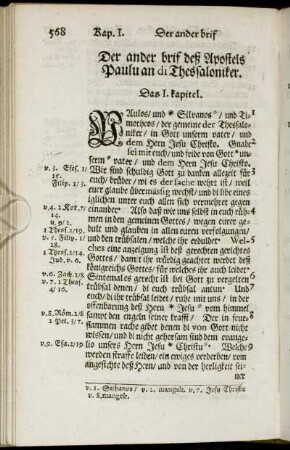 568 Kap. I. Der ander brif
Der ander brif deß Apostels
Paulu an di Thessaloniker.
Das I. kapitel.
PAulos/ und * Silvanos °/ und Ti- 1
motheos/ der gemeine der Thessalo-
niker/ in Gott unserm vater/ und
dem Hern Jesu Christo. Gnade 2
sei mit euch/ und fride von Gott * un-
serm ° vater/ und dem Hern Jesu Christo.
Wir sind schuldig Gott zu danken allezeit für 3
euch/ brüder/ wi es der sache wehrt ist/ weil
euer glaube übermäßig wechst/ und di libe eines
iglichen unter euch allen sich vermehret gegen
einander. Also daß wir uns selbst in euch rüh- 4
men in den gemeinen Gottes/ wegen eurer ge-
dult und glauben in allen euren verfolgungen/
und den trübsalen/ welche ihr erduldet. Wel- 5
ches eine anzeigung ist deß gerechten gerichtes
Gottes/ damit ihr würdig geachtet werdet deß
königreichs Gottes/ für welches ihr auch leidet.
Sintemal es gerecht ist bei Gott zu vergelten 6
denen/ di euch trübsal antun/ trübsal. Und 7
euch/ di ihr trübsal leidet/ ruhe mit uns/ in der
offenbarung deß Hern * Jesu ° vom himmel/
samt den engeln seiner krafft/ Der in feuer- 8
flammen rache gibet denen di von Gott nicht
wissen/ und di nicht gehorsam sind dem evange-
lio unsers Hern Jesu * Christu °. Welche 9
werden straffe leiden/ ein ewiges verderben/ vom
angesichte deß Hern/ und von der herligkeit sei-
ner
v. 3. Efes. 1/
15.
Filip. 1/3.
v. 4. 2 Kor. 7/
14.
u. 9/2.
1 Thes. 2/19.
v. 5. Filip. 1/
28.
1 Thes. 2/14.
Jud. v. 6.
v. 6. Zach. 2/8
v. 7. 1 Thes.
4/16.
v. 8. Röm. 2/8
2 Pet. 3/7.
v. 9. Esa. 2/19
v. 1. Silbanos/ v. 2. mangelt. v. 7. Jesu Christu
v. 8. mangelt.